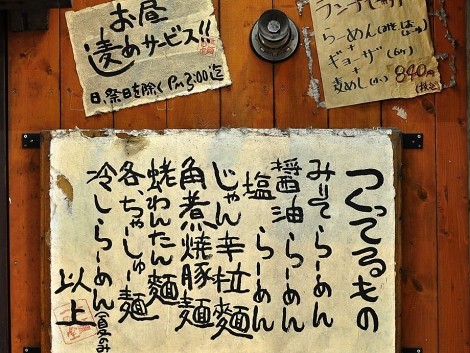 お昼
麦めサービス!!
日、祭日を除く Pm 3:00 迄
ランチセット
らーめん
+
ギョーザ
+
麦めし(小) 840円
(税込)
つくってるもの
みそらーめん
醤油らーめん
塩らーめん
じゃん辛粒麺
角煮焼豚麺
蛯わんたん麺
各ちゃーしゅー麺
冷しらーめん(夏のみ
以上